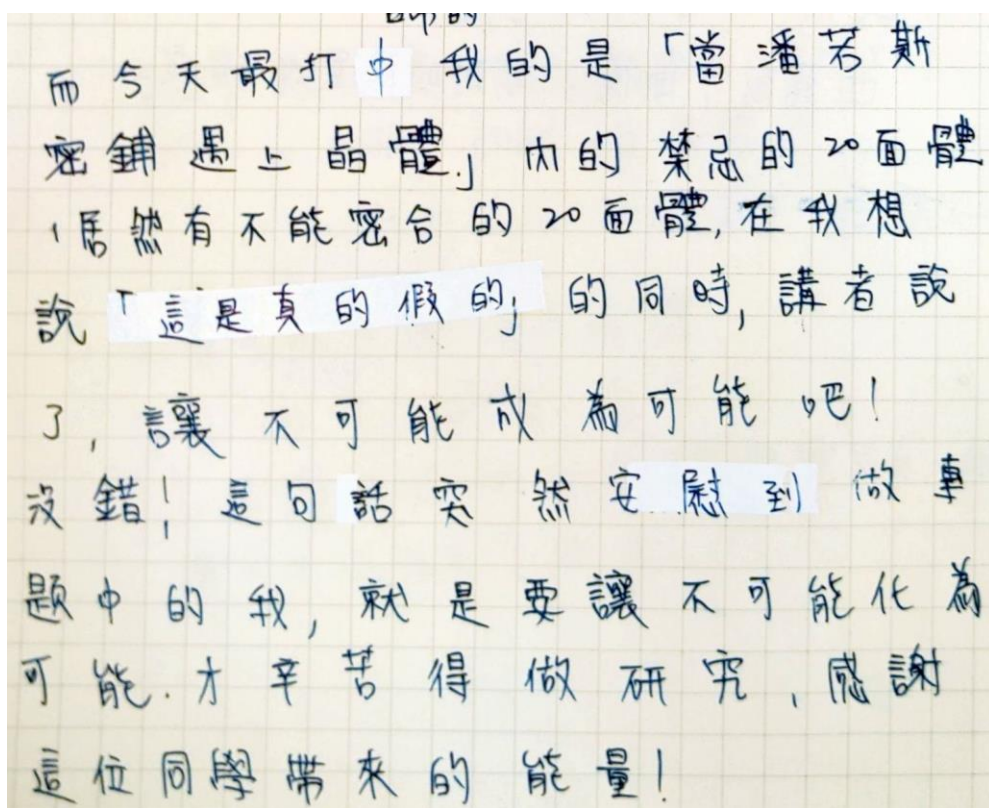 而今天最打中我的是「當潘若斯
密鋪遇上晶體」內的禁忌的20面體
,居然有不能密合的20面體,在我想
說「這是真的假的」的同時,講者說
了,讓不可能成為可能吧!
沒錯!這句話突然安慰到做專
題中的我,就是要讓不可能化為
可能.才辛苦得做研究,感謝
這位同學帶來的能量!